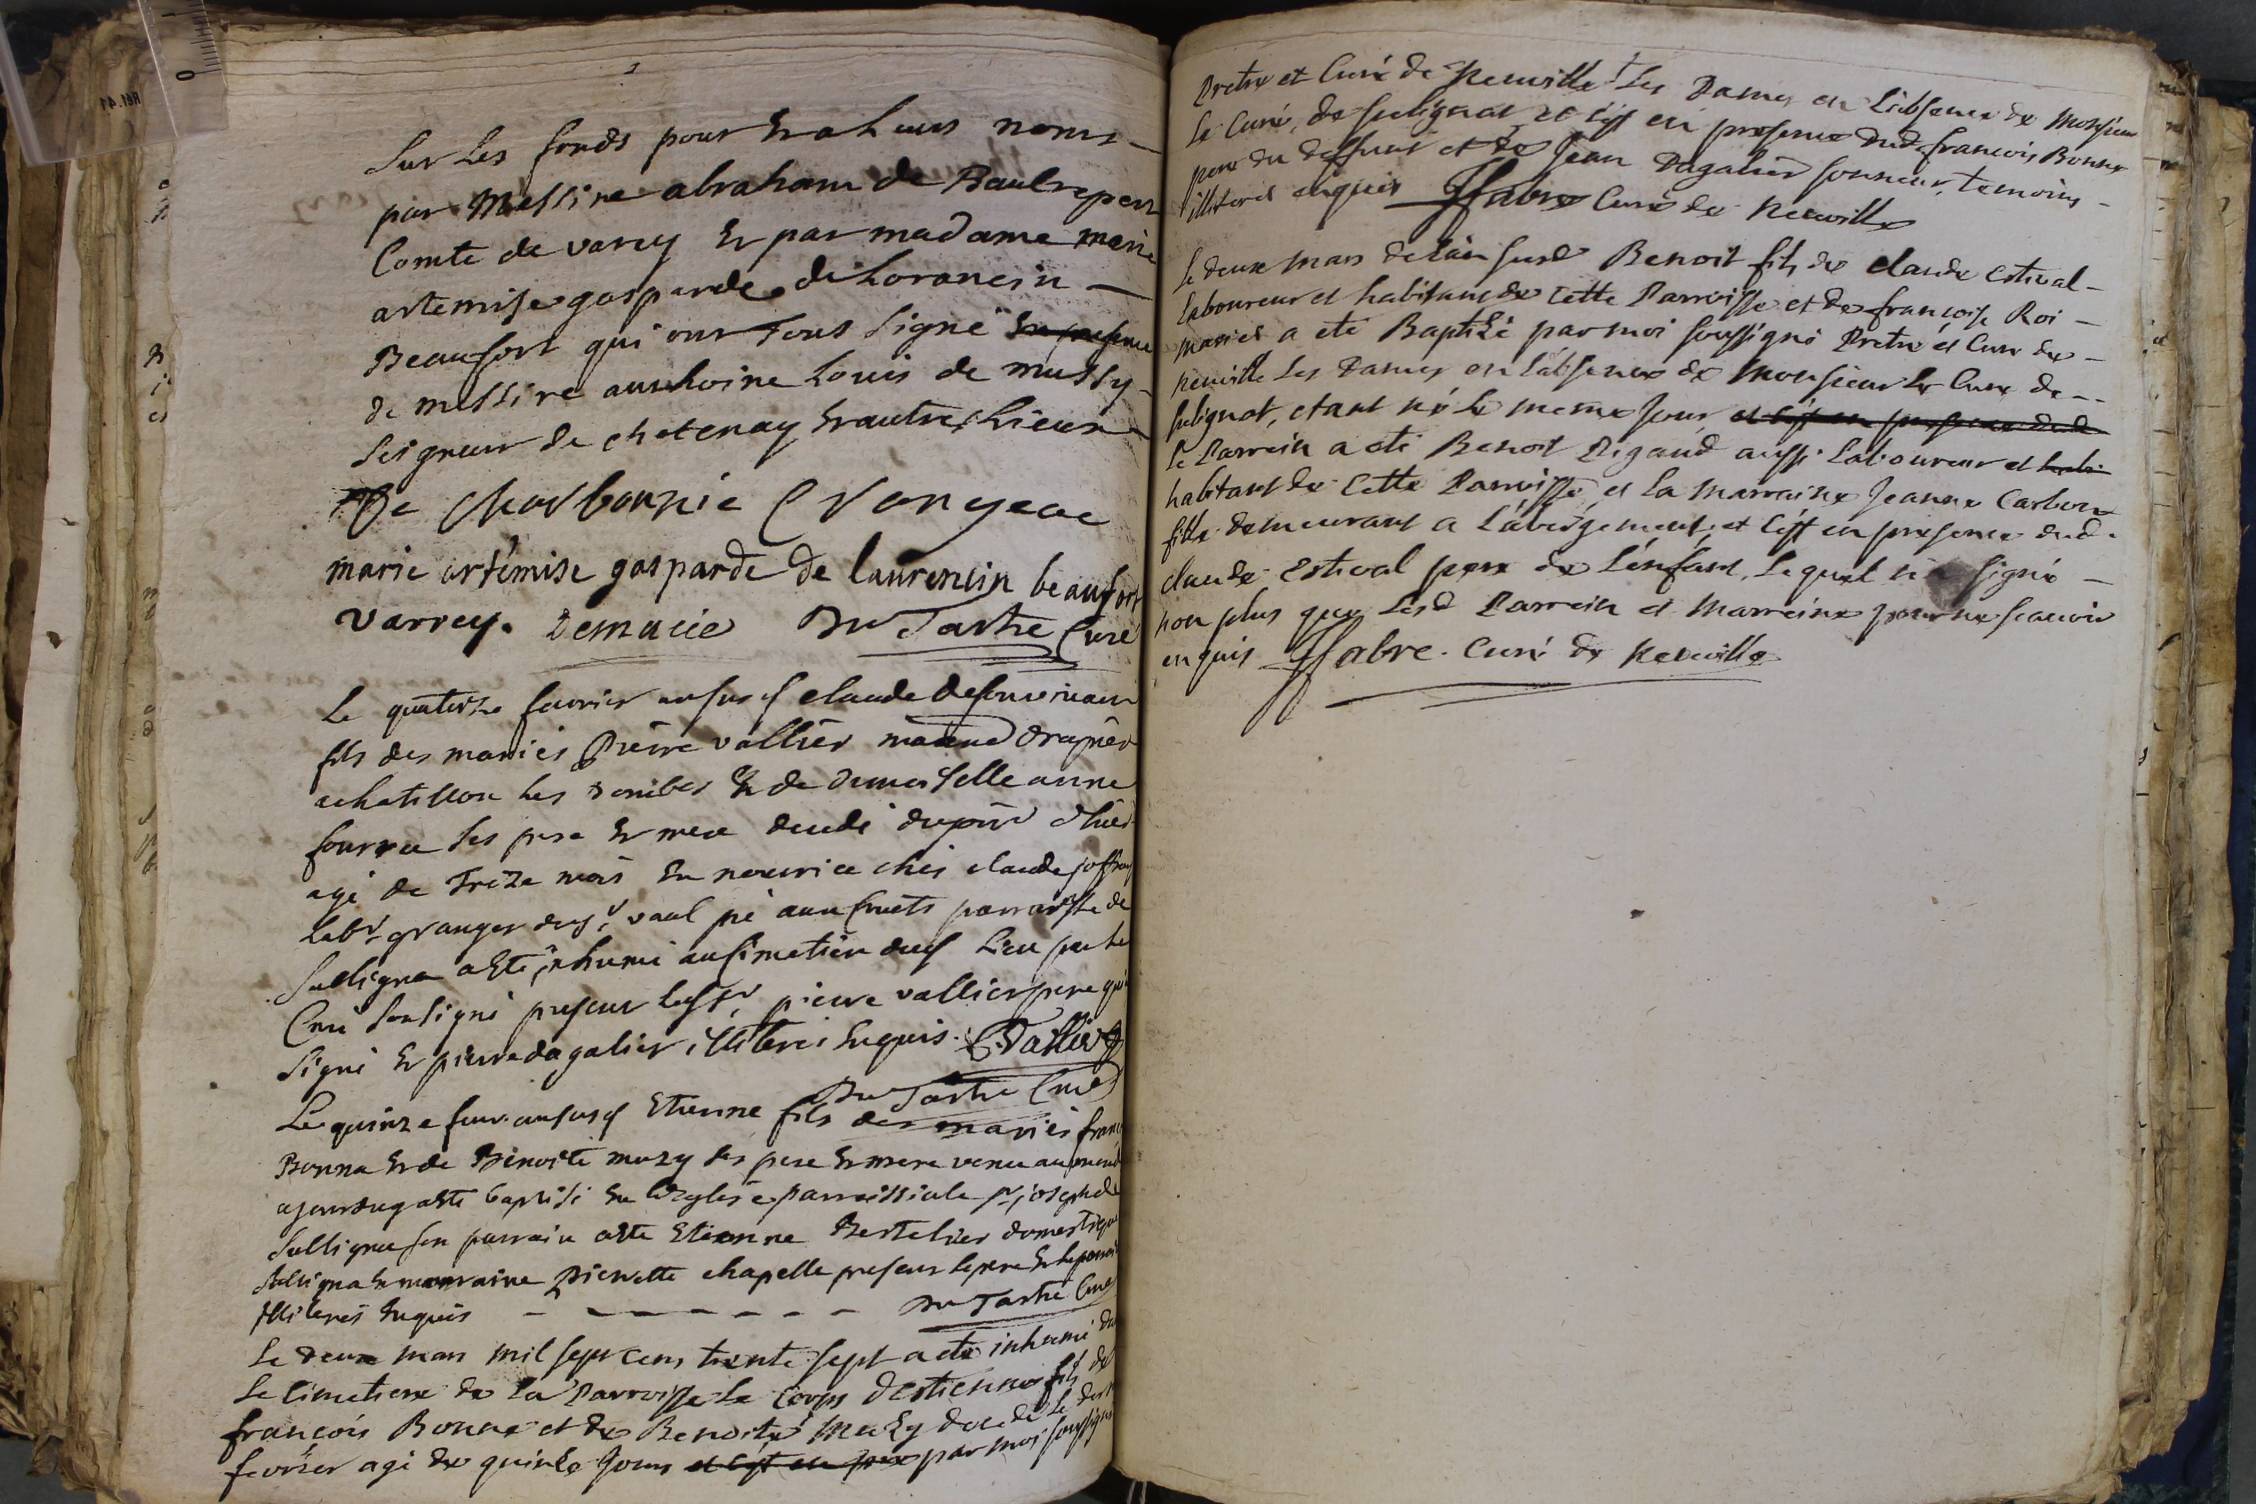 Sur les fonds pour et a leurs noms
par Messire abraham de Baulrepere
Comte de varey et par madame marie
artemise gasparde de Lorancin
Beaufort qui ont tous signé en presence
de messire anthoine Louis de mussy
seigneur de chetenay et autres Lieux
De Charbonnie
marie artémise gasparde de laurencin beaufort
varrey. Demucie Du Tartre Curé
Le quatorze fevrier an susd claude
fils des mariés Pierre vallier drapier
a chatillon les & de demoiselle anne
ses pere et mere decedé
agé de treize mois en nourice chés claude joffray
Labr granger du sr
Sulligna a esté inhumé au simetiere dud Lieu par le
Curé sousigné present led sr pierre vallier pere qui
signé et pierre dagalier illiteré enquis. Vallier
Du Tartre Curé
Le quinze fevr. an susd Etienne fils des mariés franc
Bonna et de Benoite muzy ses pere et mere venu au monde
ajourduy a esté baptisé en leglise parroissiale st joseph de
Sulligna son parrain a esté Etienne Bertelier domestique
Sulligna et marraine Pierrette chapelle present le pere et le parrain
Illiterés enquis - - - - - - - Du Tartre Curé
Le deux mars mil sept cens trente sept a eté inhumé dans
le cimetiere de la Parroisse le corps d'Estienne fils de
françois Bonne et de Benoite Muzy decedé le
fevrier agé de quinze jours et c'est en pres par moi soussigné
Pretre et Curé de Neuville Les Dames en l'absence de Monsieur
le Curé de sulignat et c'est en presence dud. francois Bonne
pere du deffunt et de Jean Dagalier sonneur, temoins
illiterés enquis ffabre Curé de Neuville
le deux Mars de l'an susd Benoit fils de claude Estival
laboureur et habitant de cette Parroisse et de françoise Roi
mariés a eté Baptizé par moi soussigné Pretre et Curé de
neuville les Dames en l'absence de Monsieur le Curé de
sulignat, etant né le meme jour, et c'est en presence dud.
le Parrein a eté Benoit Rigaud aussi laboureur et habi
habitant de cette Parroisse, et la Marraine Jeanne Carbon
fille demeurant a l'abergement, et c'est en presence dud.
claude Estival pere de l'enfant, lequel n'a signé
non plus que lesd Parrein et Marreine pour ne scavoir
enquis ffabre. Curé de Neuville